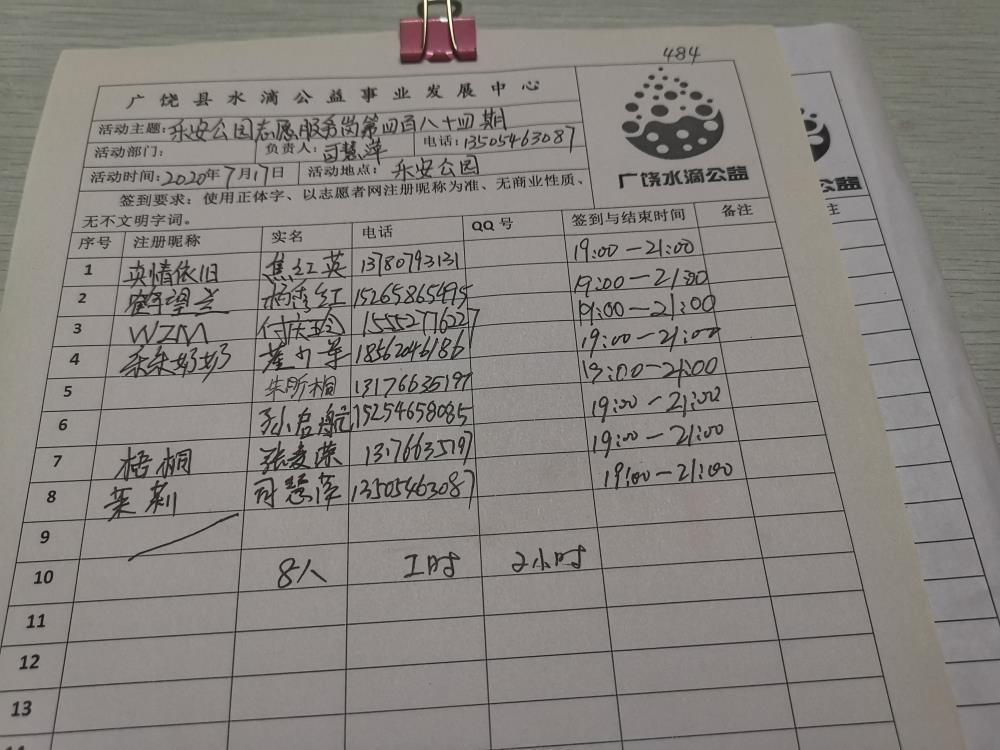 484
广饶县水滴公益事业发展中心
活动主题:乐安公园志愿服务岗第四百八十四期
活动部门: 负责人:司慧萍 电话:13505463087
活动时间:2020年7月17日 活动地点:乐安公园
签到要求:使用正体字、以志愿者网注册昵称为准、无商业性质、
无不文明字词。
广饶水滴公益
序号 注册昵称 实名 电话 QQ号 签到与结束时间 备注
1 真情依旧 焦红英 13780793131 19:00—21:00
2 鹤望兰 杨秀红 15265865495 19:00—21:00
3 WZM 15552776227 19:00—21:00
4 朵朵奶奶 崔少军 18562046186 19:00—21:00
5 朱昕桐 13176635197 19:00—21:00
6 孙启航 15254658085 19:00—21:00
7 梧桐 张爱荣 13176635197 19:00—21:00
8 茉莉 司慧萍 13505463087 19:00—21:00
9
10 8人 工时 2小时
11
12
13
公益
注